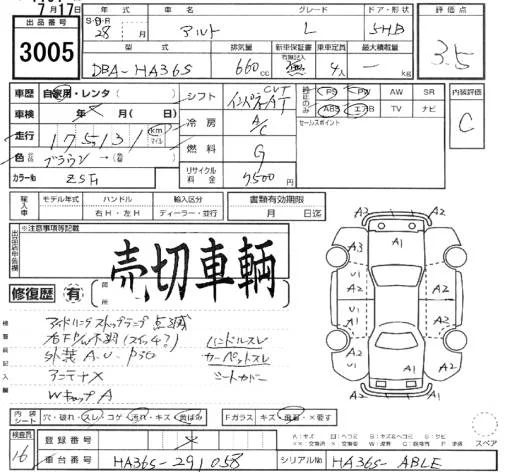 月17日
出品番号
3005
年式
S・H・R
28 月
車名
アルト
グレード
L
ドア・形状
5HB
評価点
3.5
型式
DBA-HA36S
排気量
660cc
新車保証書
無
乗車定員
4人
最大積載量
— kg
車歴 自家用・レンタ ( )
車検 年 月( )
走行 175,131 km マイル
色 ブラウン → ( )
カラーNo ZSF1
シフト
冷房 A/C
燃料 G
リサイクル料金 7500円
PS PW AW SR
ABS エアB TV ナビ
セールスポイント
内装評価
C
輸入車
モデル年式
ハンドル
右H・左H
輸入区分
ディーラー・並行
書類有効期限
月 日迄
※注意事項等記載
売切車輌
修復歴 有
箇所
アイドリングストップランプ点滅
外装A.U.P多し
アンテナX
WキャップA
ハンドルスレ
カーペットスレ
シートカバー
A2 A1 A3
A2 A1 A2
U1 A1 U1
A3 A1 A2
内装シート 穴・破れ・スレ・コゲ・汚れ・キズ・黄ばみ
Fガラス キズ・飛石・×要す
検査員
16
登録番号 ×
車台番号 HA36S-291058
シリアルNo HA36S-ABLE
スペア